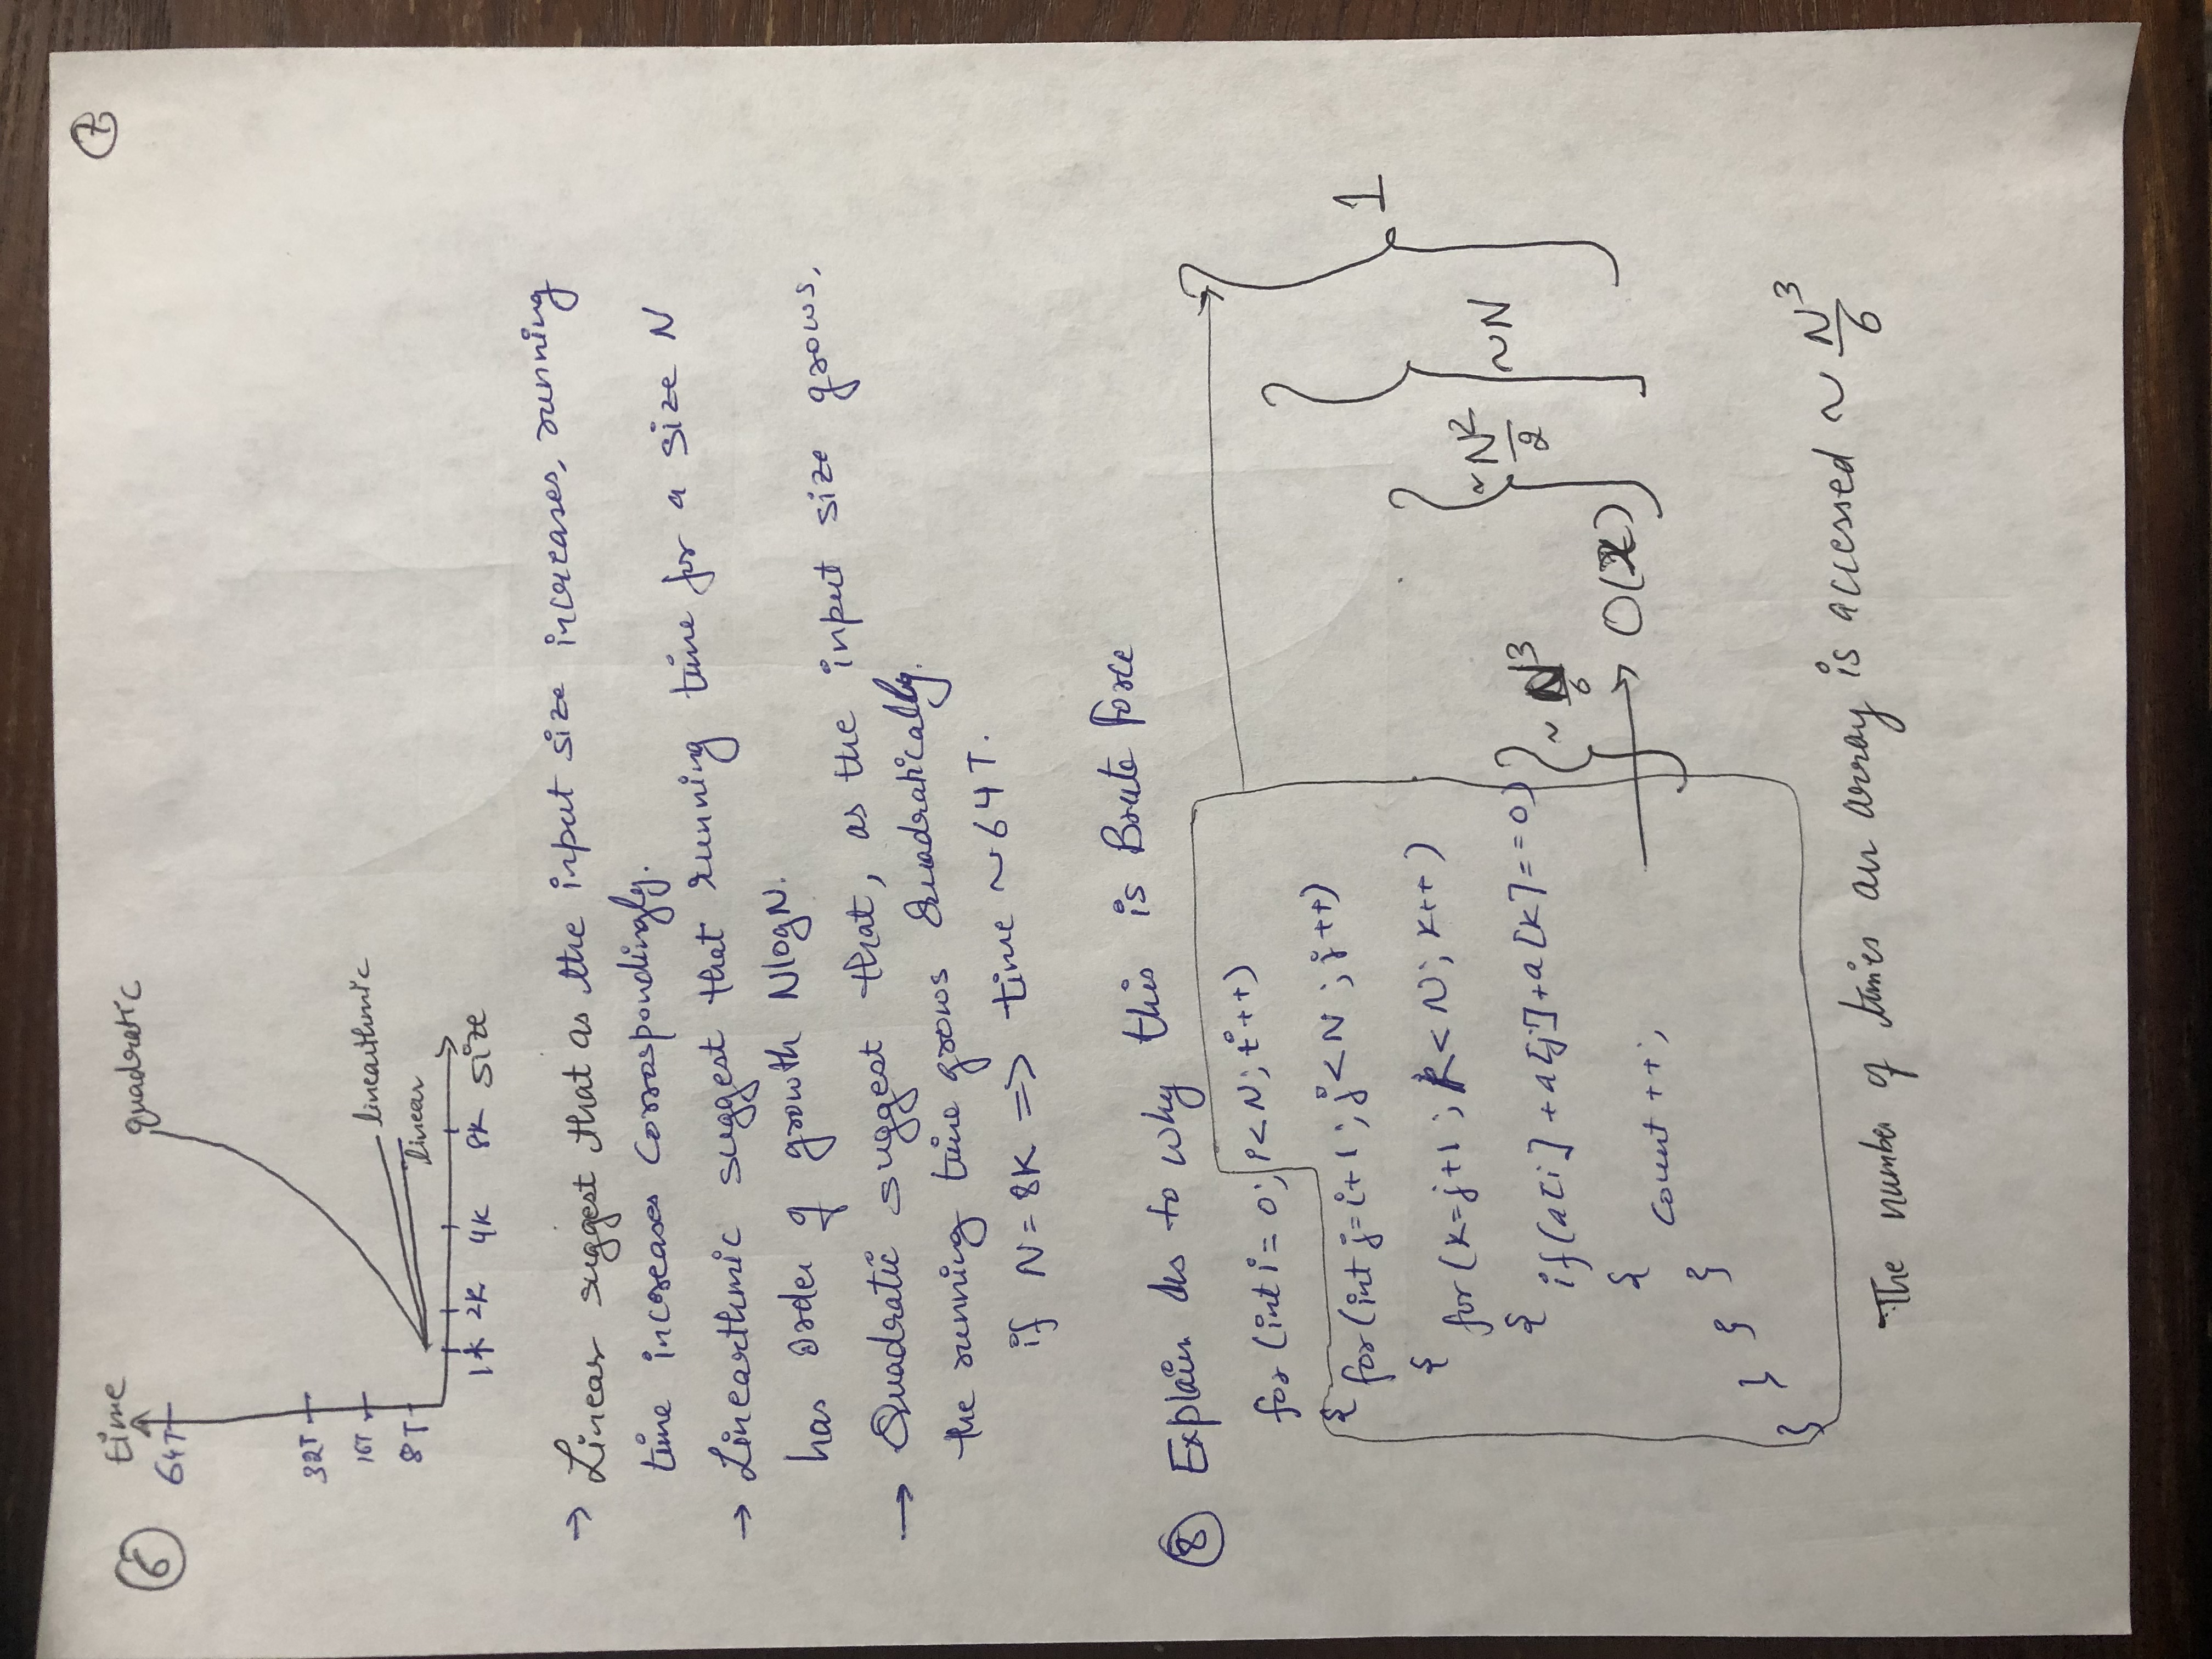 7
6
time
quadratic
64T
32T
16T
8T
linearthmic
linear
1K 2K 4K 8K size
→ Linear suggest that as the input size increases, running
time increases Corraspondingly.
→ Linearthmic suggest that running time for a size N
has order of growth NlogN.
→ Quadratic suggest that, as the input size grows,
the running time grows Quadratically.
if N = 8K => time ~ 64T.
8 Explain As to why this is Brute force
for (int i = 0; i < N; i++)
{ for (int j = i+1; j < N; j++)
{ for (k = j+1; k < N; k++)
{ if (a[i] + a[j] + a[k] == 0)
{
Count ++;
}
}
}
}
~ N³/6
→ O( )
~ N²/2
~ N
1
The number of times an array is accessed ~ N³/6